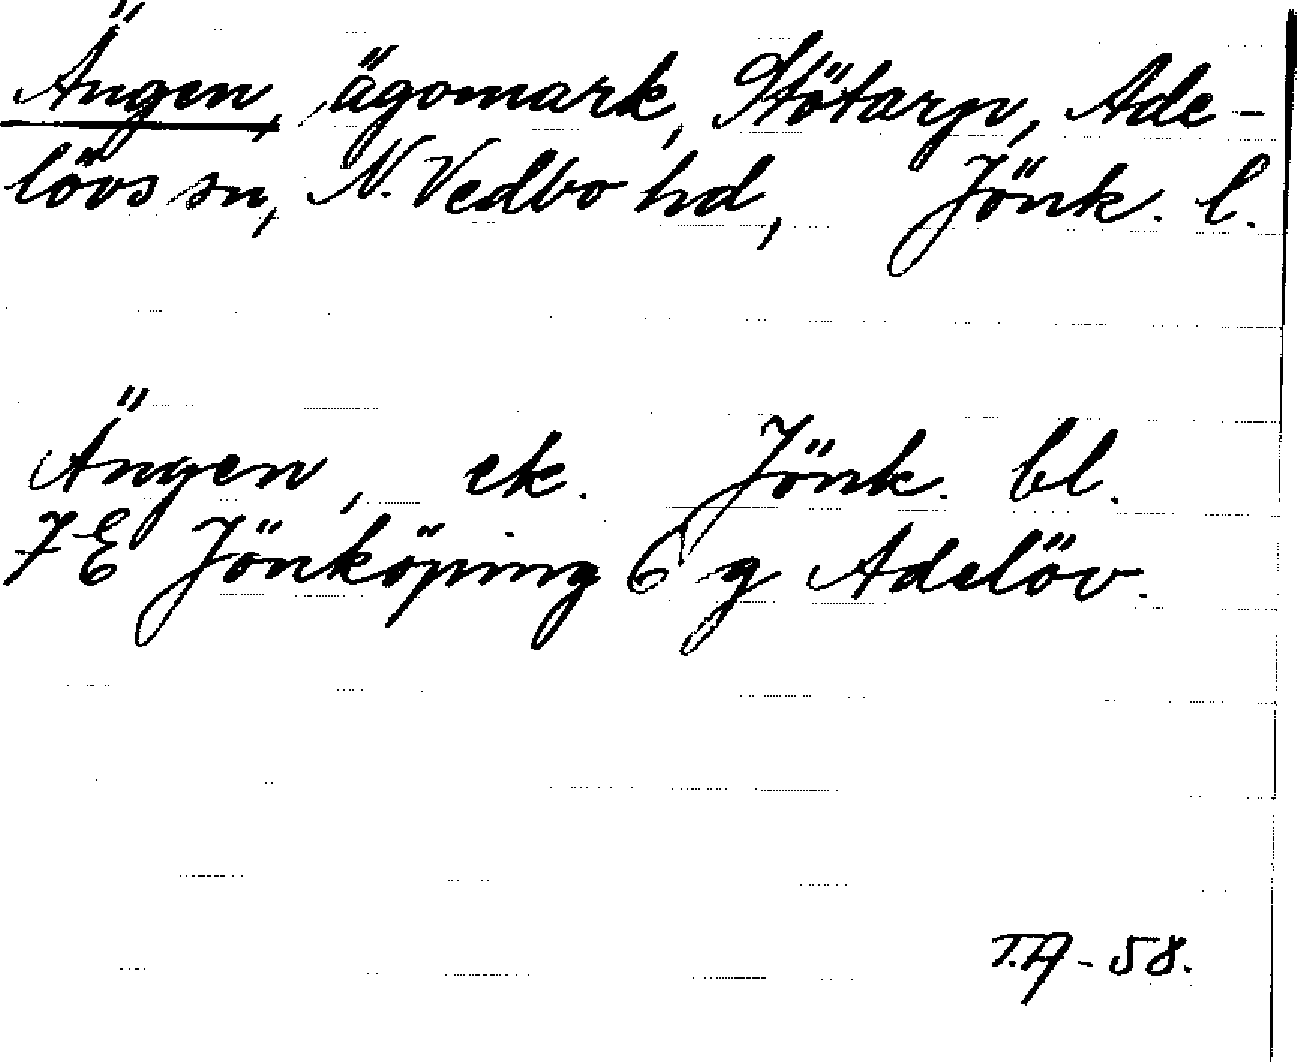 Ängen, ägomark, Stötarp, Ade-
lövs sn, N. Vedbo hd, Jönk. l.
Ängen, ek. Jönk. bl.
7E Jönköping 6 g Adelöv.
T.A - 58.